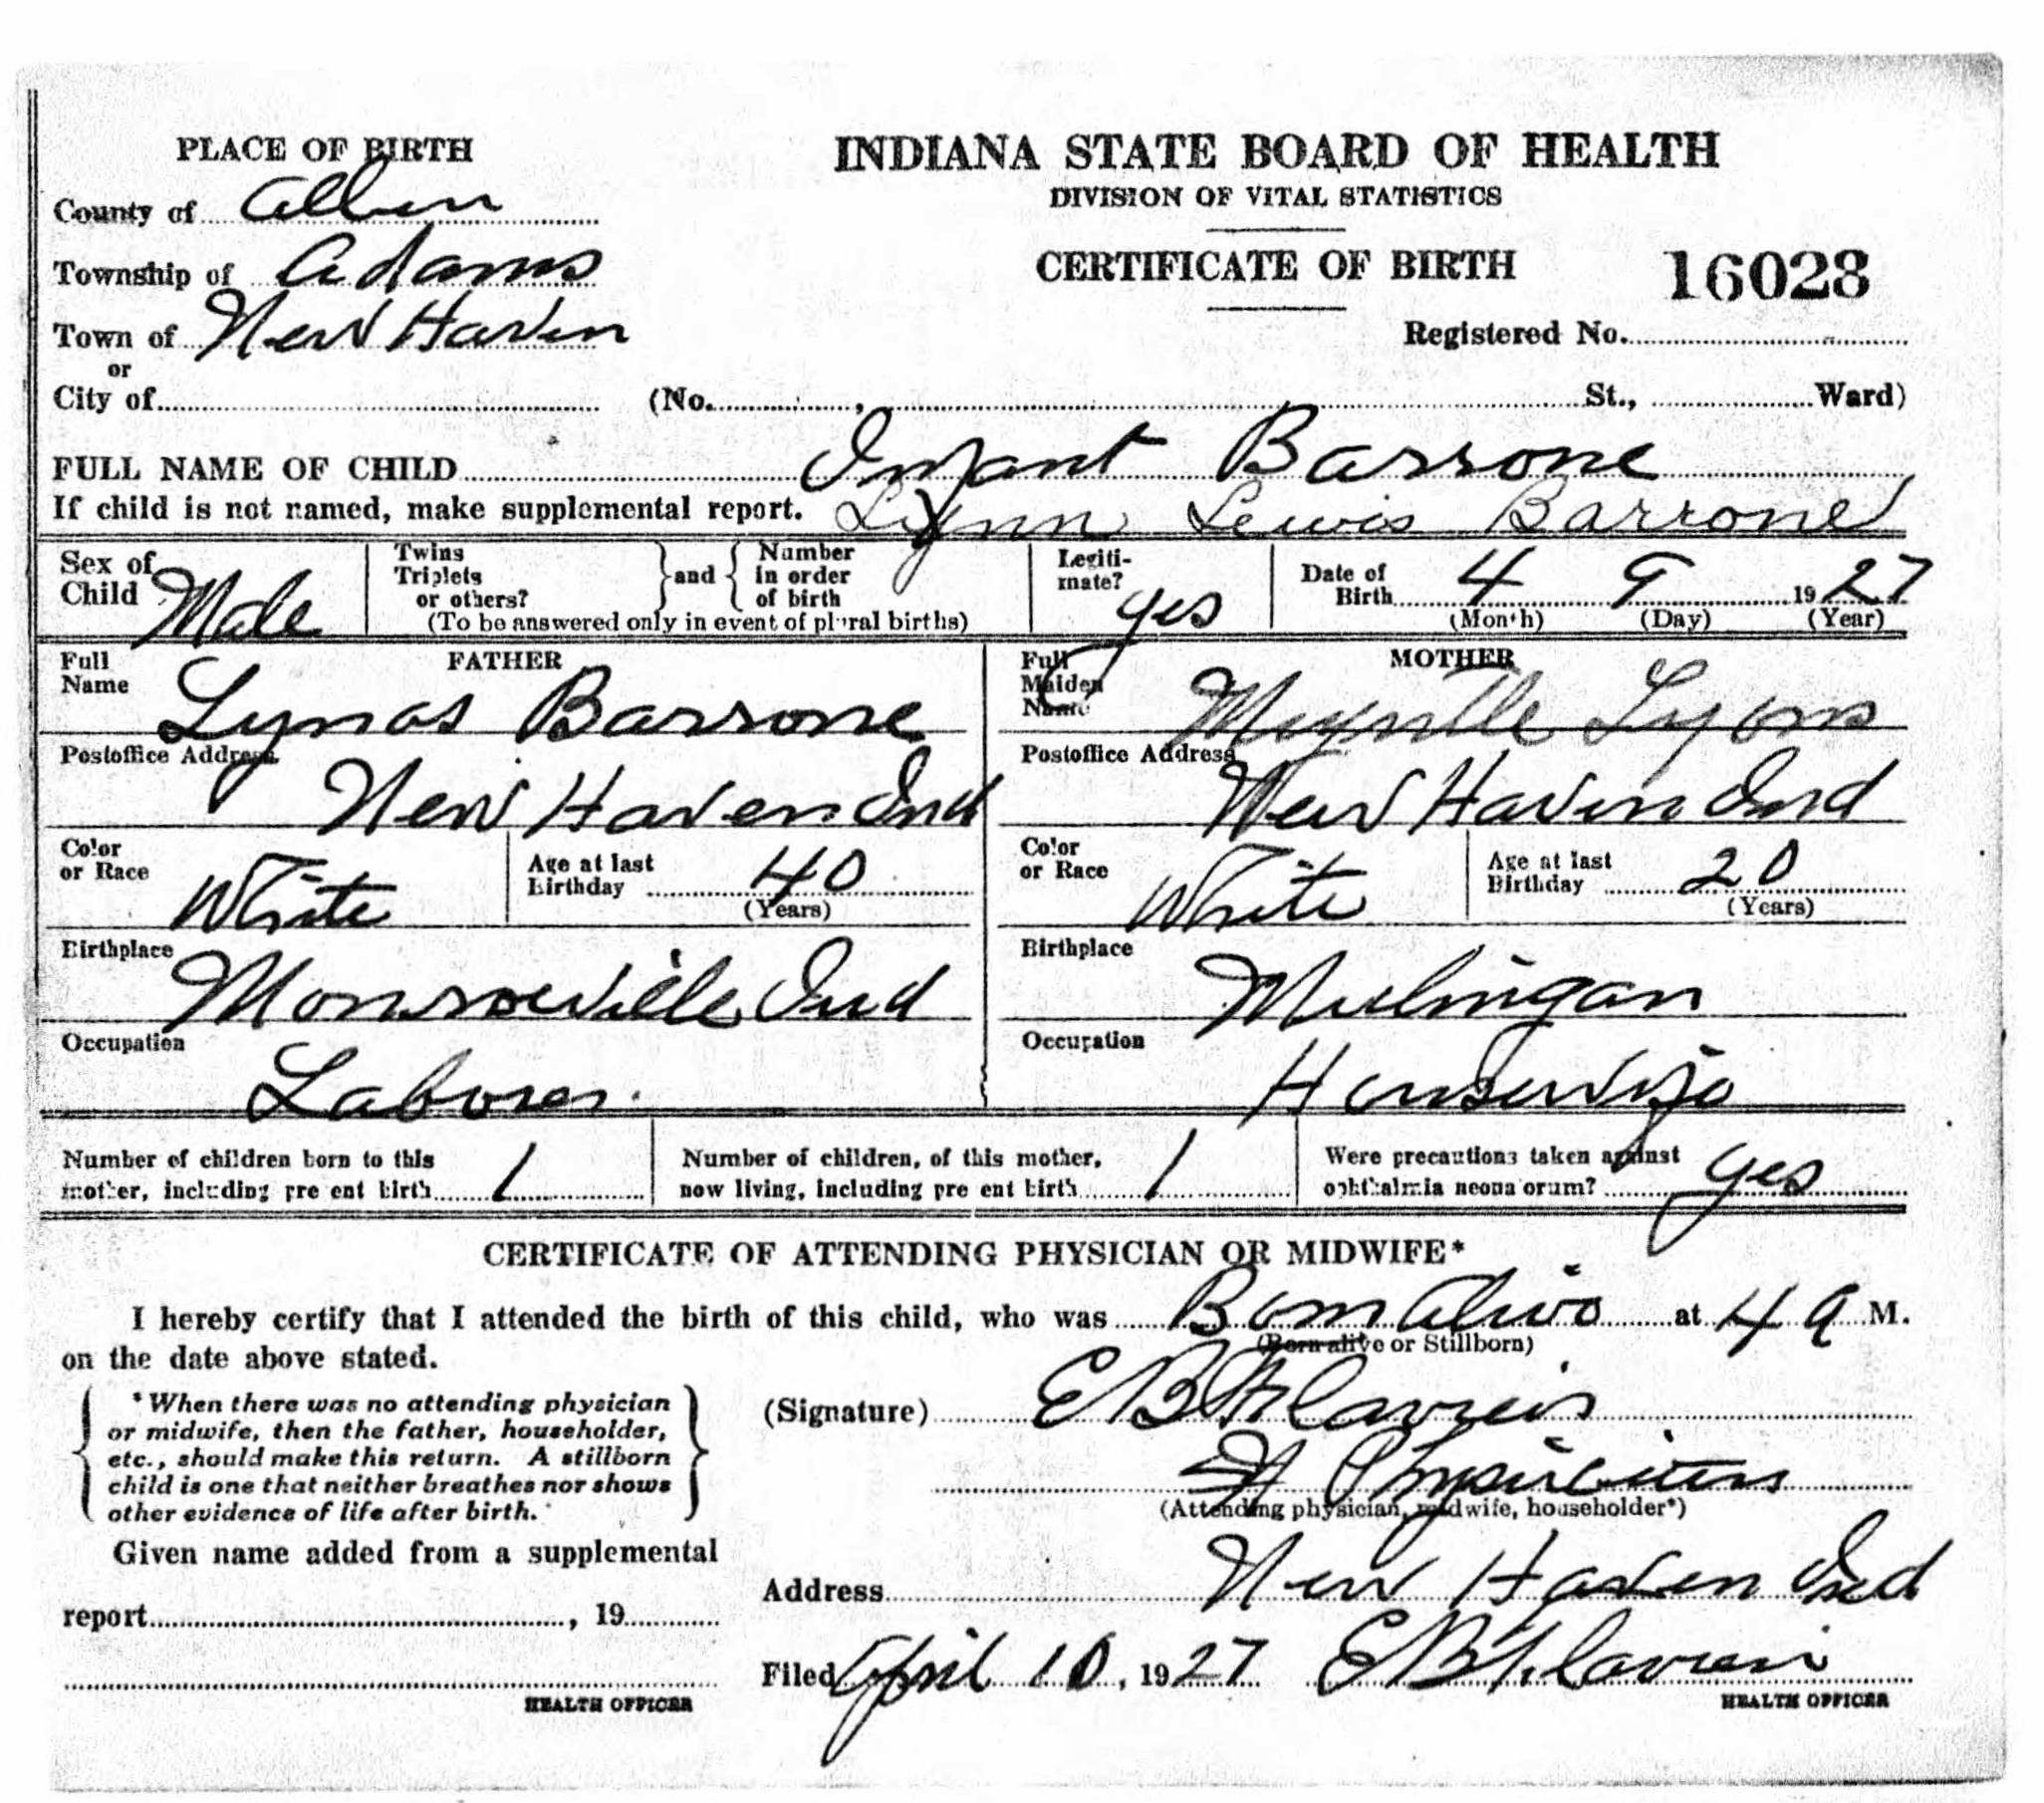 PLACE OF BIRTH
INDIANA STATE BOARD OF HEALTH
DIVISION OF VITAL STATISTICS
County of Allen
CERTIFICATE OF BIRTH 16028
Township of Adams
Town of New Haven
Registered No.
or
City of (No. , St., Ward)
FULL NAME OF CHILD Infant Barrone
If child is not named, make supplemental report. Lynn Lewis Barrone
Sex of Child Male
Twins Triplets or others? and Number in order of birth
(To be answered only in event of plural births)
Legiti-mate? yes
Date of Birth 4 9 1927
(Month) (Day) (Year)
FATHER
Full Name Lynas Barrone
Postoffice Address
New Haven Ind
Color or Race White
Age at last Birthday 40
(Years)
Birthplace
Monroeville Ind
Occupation
Laborer.
MOTHER
Full Maiden Name Lyons
Postoffice Address
New Haven Ind
Color or Race White
Age at last Birthday 20
(Years)
Birthplace
Occupation
Housewife
Number of children born to this mother, including present birth 1
Number of children, of this mother, now living, including present birth 1
Were precautions taken against ophthalmia neonatorum? yes
CERTIFICATE OF ATTENDING PHYSICIAN OR MIDWIFE*
I hereby certify that I attended the birth of this child, who was Born Alive at 4 a M.
(Born alive or Stillborn)
on the date above stated.
*When there was no attending physician
or midwife, then the father, householder,
etc., should make this return. A stillborn
child is one that neither breathes nor shows
other evidence of life after birth.
(Signature) E B
(Attending physician, midwife, householder*)
Given name added from a supplemental
report , 19
HEALTH OFFICER
Address New Haven Ind
Filed April 10, 1927 E B
HEALTH OFFICER